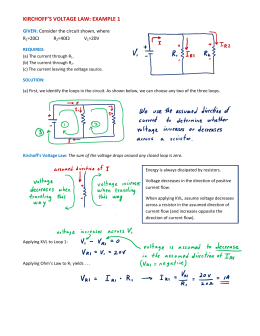 KIRCHOFF'S VOLTAGE LAW: EXAMPLE 1
GIVEN: Consider the circuit shown, where
R₁=20Ω R₂=40Ω V₁=20V
V₁ R₁ I_R1 R₂ I_R2
REQUIRED:
(a) The current through R₁.
(b) The current through R₂.
(c) The current leaving the voltage source.
SOLUTION:
(a) First, we identify the loops in the circuit. As shown below, we can choose any two of the three loops.
① ② ③
We use the assumed direction of
current to determine whether
voltage increases or decreases
across a resistor.
Kirchoff's Voltage Law: The sum of the voltage drops around any closed loop is zero.
assumed direction of I
voltage
decreases when
traveling this
way
voltage increases
when traveling
this way
Energy is always dissipated by resistors.
Voltage decreases in the direction of positive
current flow.
When applying KVL, assume voltage decreases
across a resistor in the assumed direction of
current flow (and increases opposite the
direction of current flow).
voltage increases across V₁
Applying KVL to Loop 1: V₁ - V_R1 = 0
V_R1 = V₁ = 20V
voltage is assumed to decrease
in the assumed direction of I_R1
(V_R1 = negative)
Applying Ohm's Law to R₁ yields . . .
V_R1 = I_R1 · R₁ → I_R1 = V_R1/R₁ = 20V/20Ω = 1A